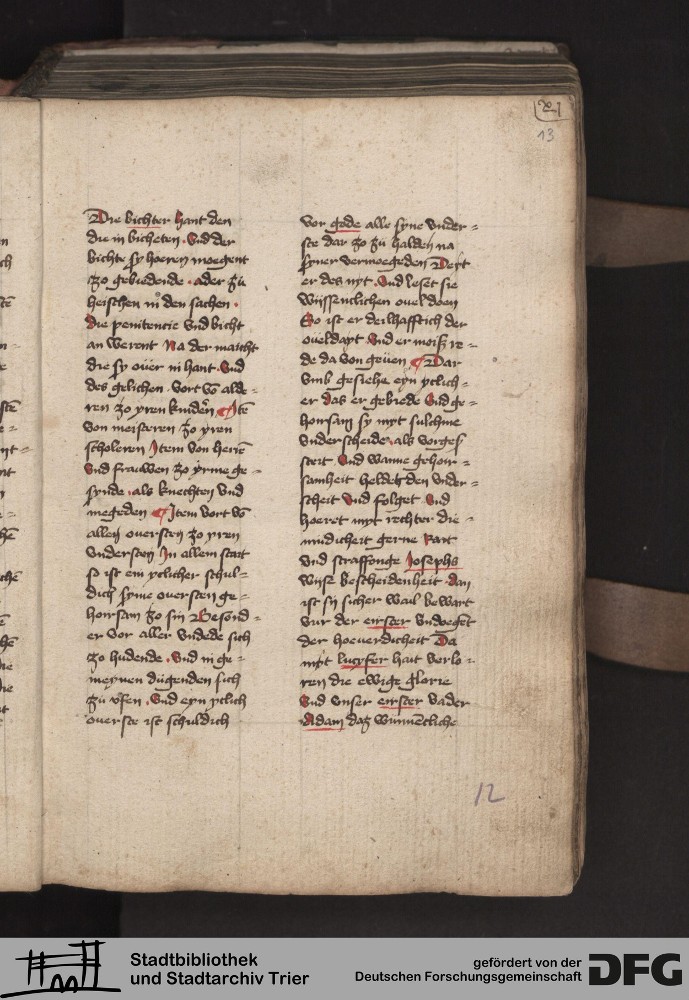 13
Die bichter hant den
die in bicheten. Vnd der
bichte sy hoeren moegent
zo gebiedende. ader zü
heischen in den sachen.
die penitencie vnd bicht
an werent Na der maicht
die sy ouer in hant. Vnd
des gelichen. vort võ alde=
ren zo yren kinderẽ Itẽ
von meisteren zo yren
scholeren Item von herẽ
vnd frauwen zo yrme ge=
synde. als knechten vnd
megeden Item vort võ
allen ouersten zo yren
vndersten In allem stait
so ist ein yclicher schul=
dich syme ouersten ge=
hoirsam zo sin Besond=
er vor aller vndede sich
zo hudende. Vnd in ge=
meynen dügenden sich
zü vsen. Vnd eyn yclich
ouerste ist schuldich
vor gode alle syne vnder=
ste dar zo zü halden na
syner vermoegeden Deyt
er des nyt. Vnd leset sie
wissentlichen ouel doen
So ist er deilhafftich der
oueldayt. Vnd er moiß re=
de da von geuen Dar
vmb gesiehe eyn yclich=
er das er gebiede Vnd ge=
hoirsam sy myt sulchme
vnderscheide. als vorges
steit. Vnd wanne gehoir=
samheit heldet den vnder=
scheit Vnd folget Vnd
hoeret myt rechter die=
mudicheit gerne Rait
vnd straffonge Josephs
vnse bescheidenheit dan
ist sy sicher wail bewart
vur der eirster vndoeget
der hoeuerdicheit Da
myt lucyfer hait verlo=
ren die ewige glorie
Vnd vnser eirster vader
Adam daz wunnẽcliche
12
Stadtbibliothek
und Stadtarchiv Trier
gefördert von der
Deutschen Forschungsgemeinschaft
DFG